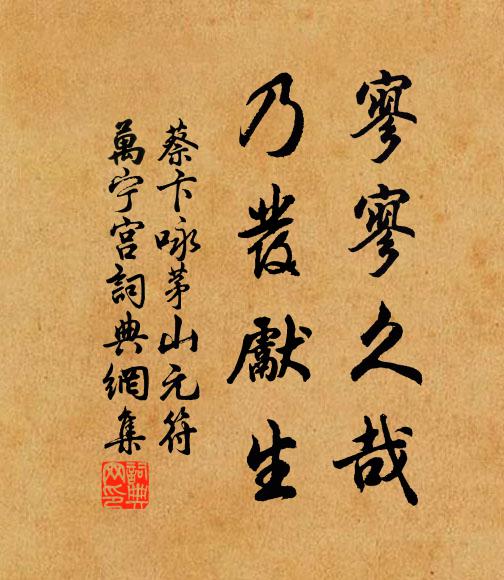 寥寥久哉
乃發獻生
蔡卞咏茅山元符
萬宁宫詞典網集
詞典网印